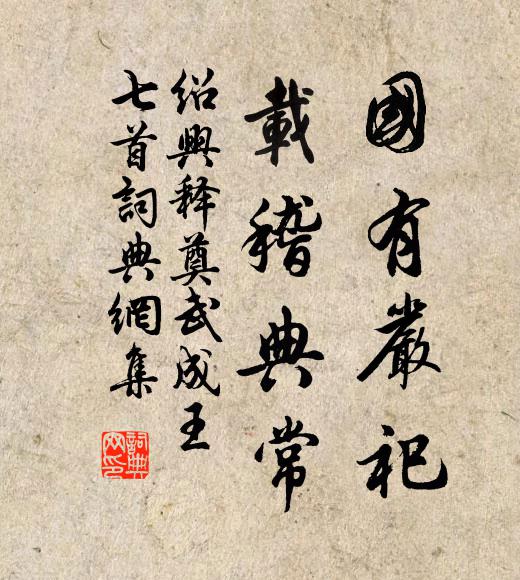 國有嚴祀
載稽典常
紹興释奠武成王
七首詞典網集
詞典
网印